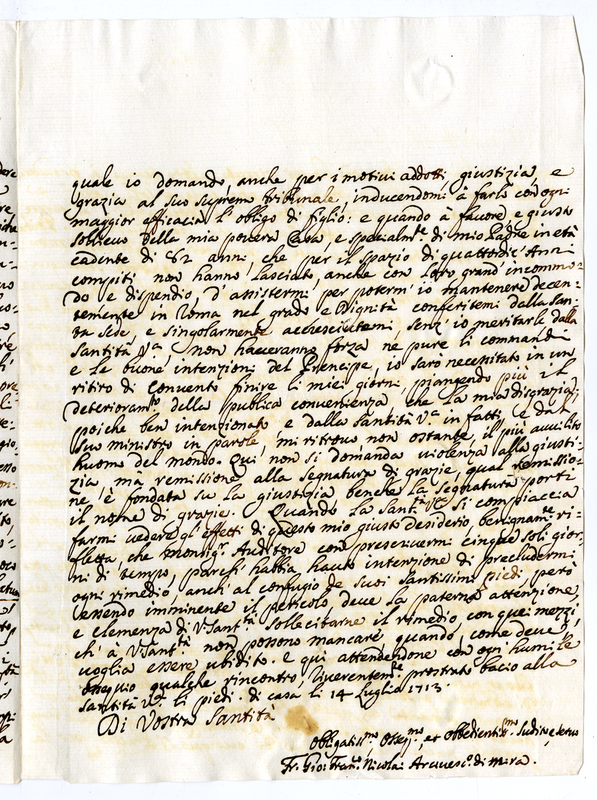 quale io domando, anche per i motivi addotti, giustizia, e
grazia al suo supremo Tribunale, inducendomi à farla con ogni
maggior efficacia l'obligo di figlio: e quando à favore e giusto
sollievo della mia povera Casa, e spezialm.te di mio Padre in età
cadente di 82 anni, che per il spazio di quattordici Anni
compiti non hanno lasciato, anche con loro grand'incommo-
do e dispendio, d'assistermi per poterm'io mantenere decen-
temente in Roma nel grado e Dignità conferitemi dalla San-
ta Sede, e singolarmente accresciutemi, senz'io meritarle dalla
Santità V.a non haveranno forza ne pure li commandi
e le buone intenzioni del Prencipe, io sarò necessitato in un
ritiro di convento finire li miei giorni, piangendo più il
deterioram.to della publica convenienza che la mia disgrazia;
poiche ben intenzionato e dalla Santità V.a in fatti, e dal
suo ministro in parole, mi ritrovo non ostante il più avvilito
huomo del mondo. Qui non si domanda violenza alla giusti-
zia, ma remissione alla segnatura di grazie, qual remissio-
ne, è fondata su la giustizia benche la segnatura porti
il nome di grazie. Quando la Sant.tà V.a si compiaccia
farmi vedere gl'effetti di questo mio giusto desiderio, benignam.te ri-
fletta, che monsig.r Auditore con prescrivermi cinque soli gior-
ni di tempo, parche habbia hauto intenzione di precludermi
ogni rimedio, anch'al confugio de suoi Santissimi piedi, però
essendo imminente il pericolo, deve la paterna attenzione,
e clemenza di V. Sant.tà sollecitarne il rimedio, con quei mezzi,
ch'à V. Sant.tà non possono mancare quando, come deve,
voglia essere ubidito. e qui attendendone con ogni humile
ossequio qualche rincontro riverentem.te prostrato bacio alla
Santità V.a li piedi. di casa li 14 Luglio 1713.
Di Vostra Santità
Obligatiss.mo Osseq.mo, et Obbedientis.mo Suditoe servo
Fr. Gio: Fran.co Nicolai Arcivesc.o di Mira.